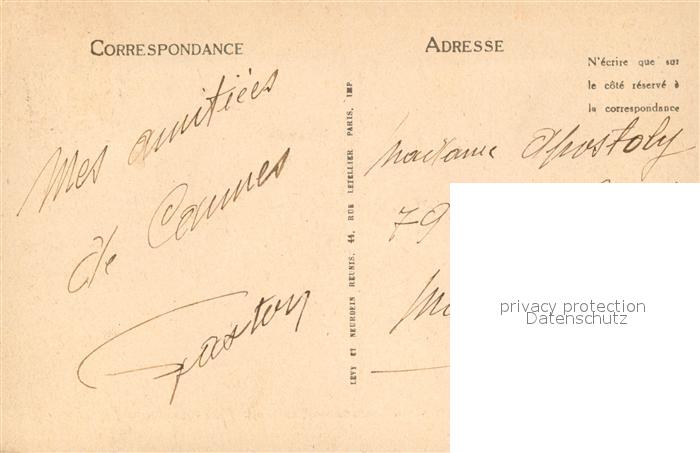 CORRESPONDANCE
Mes amitiées
de Cannes
Gaston
LEVY ET NEURDEIN REUNIS, 44, RUE LETELLIER PARIS, IMP
ADRESSE
N'écrire que sur
le côté réservé à
la correspondance
Madame Apostoly
79
privacy protection
Datenschutz